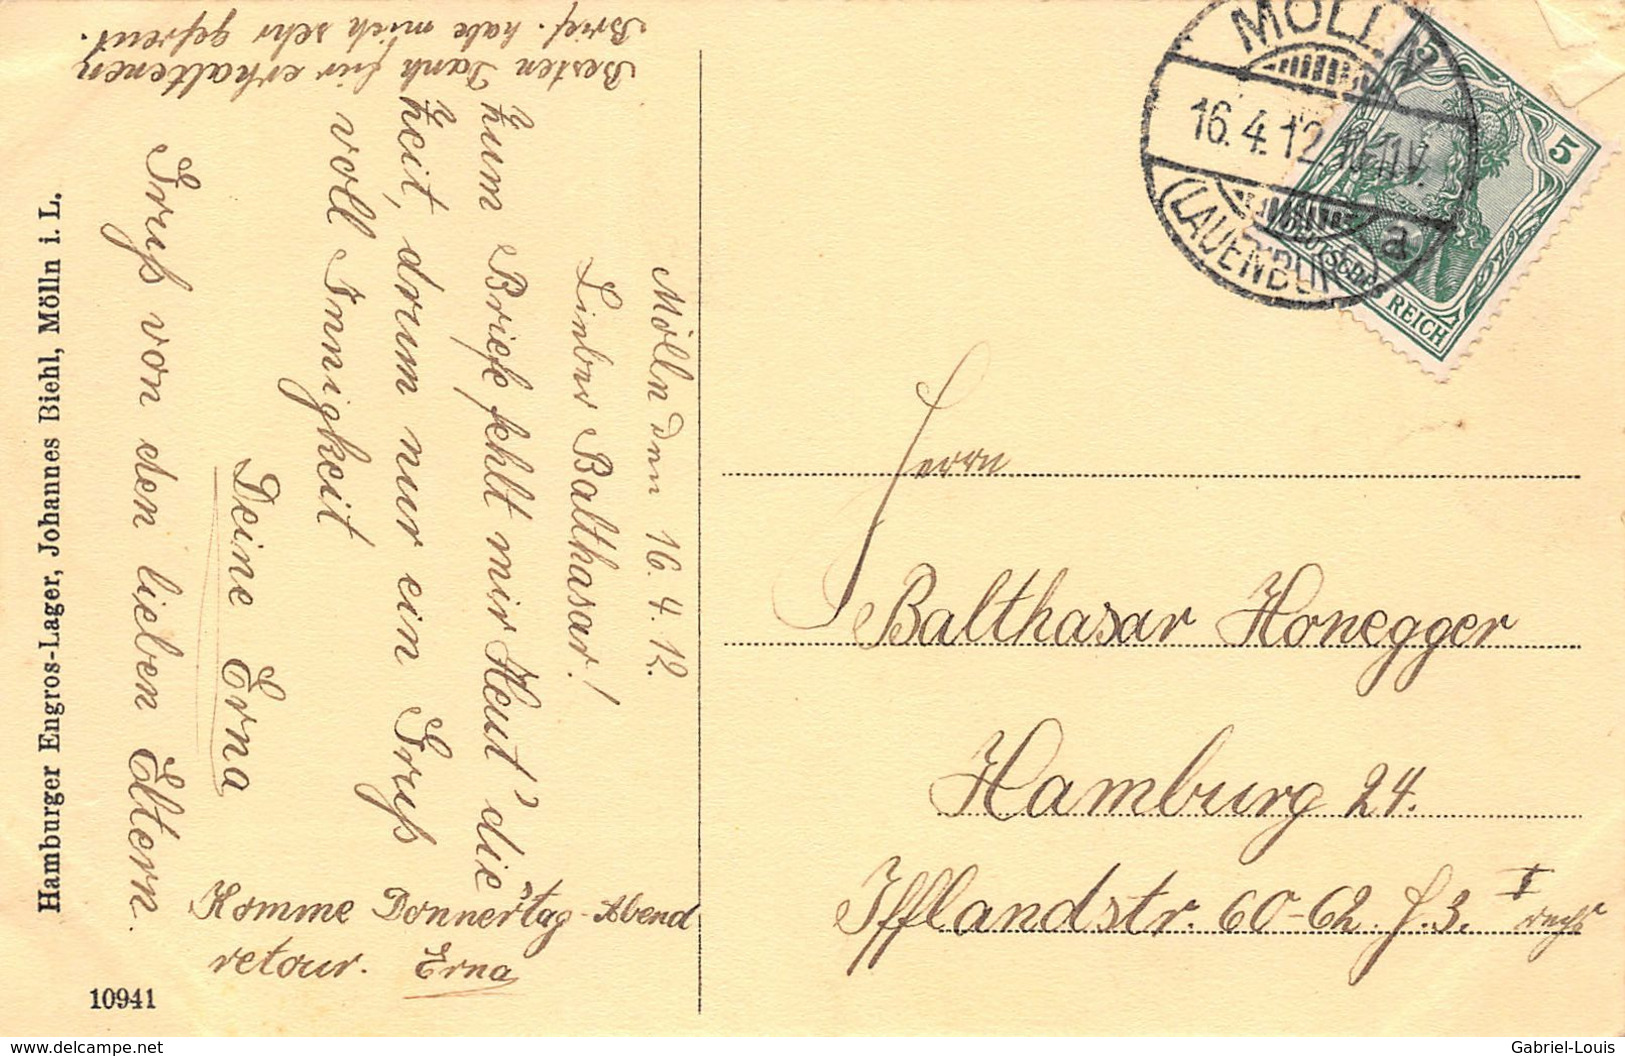 Mölln den 16. 4. 12.
Lieber Balthasar!
Zum Briefe fehlt mir Heut' die
Zeit, drum nur ein Gruß
voll Innigkeit
Deine Erna
Gruß von den lieben Eltern.
Besten Dank für erhaltenen
Brief. habe mich sehr gefreut.
Komme Donnerstag-Abend
retour. Erna
Hamburger Engros-Lager, Johannes Biehl, Mölln i. L.
10941
MÖLLN
16.4.12.
(LAUENBURG)
a
5
5
DEUTSCHES REICH
Herrn
Balthasar Honegger
Hamburg 24.
Ifflandstr. 60-62. H. 3. I rechts
delcampe.net
Gabriel-Louis